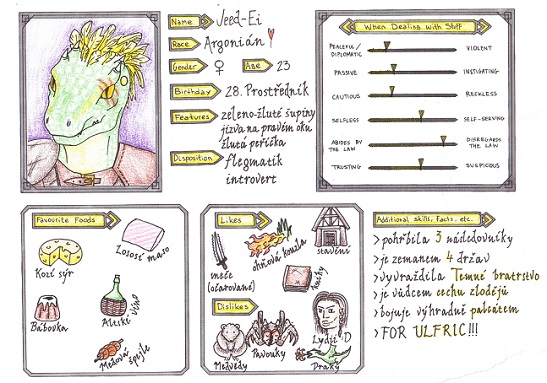 Name Jeed-Ei
Race Argonián
Gender ♀ Age 23
Birthday 28. Prostředník
Features zeleno-žluté šupiny
jizva na pravém oku
žlutá peříčka
Disposition flegmatik
introvert
When Dealing with Stuff
PEACEFUL/DIPLOMATIC VIOLENT
PASSIVE INSTIGATING
CAUTIOUS RECKLESS
SELFLESS SELF-SERVING
ABIDES BY THE LAW DISREGARDS THE LAW
TRUSTING SUSPICIOUS
Favourite Foods
Kozí sýr
Lososí maso
Bábovka
Altské víno
Medová špejle
Likes
meče (očarované)
ohnivá kouzla
stavění
knihy
Dislikes
Medvědy
Pavouky
Lydie :D
Draky
Additional skills, Facts, etc.
>pohřbila 3 následovníky
>je zemanem 4 držav
>vyvraždila Temné bratrstvo
>je vůdcem cechu zlodějů
>bojuje výhradně palcátem
>FOR ULFRIC!!!